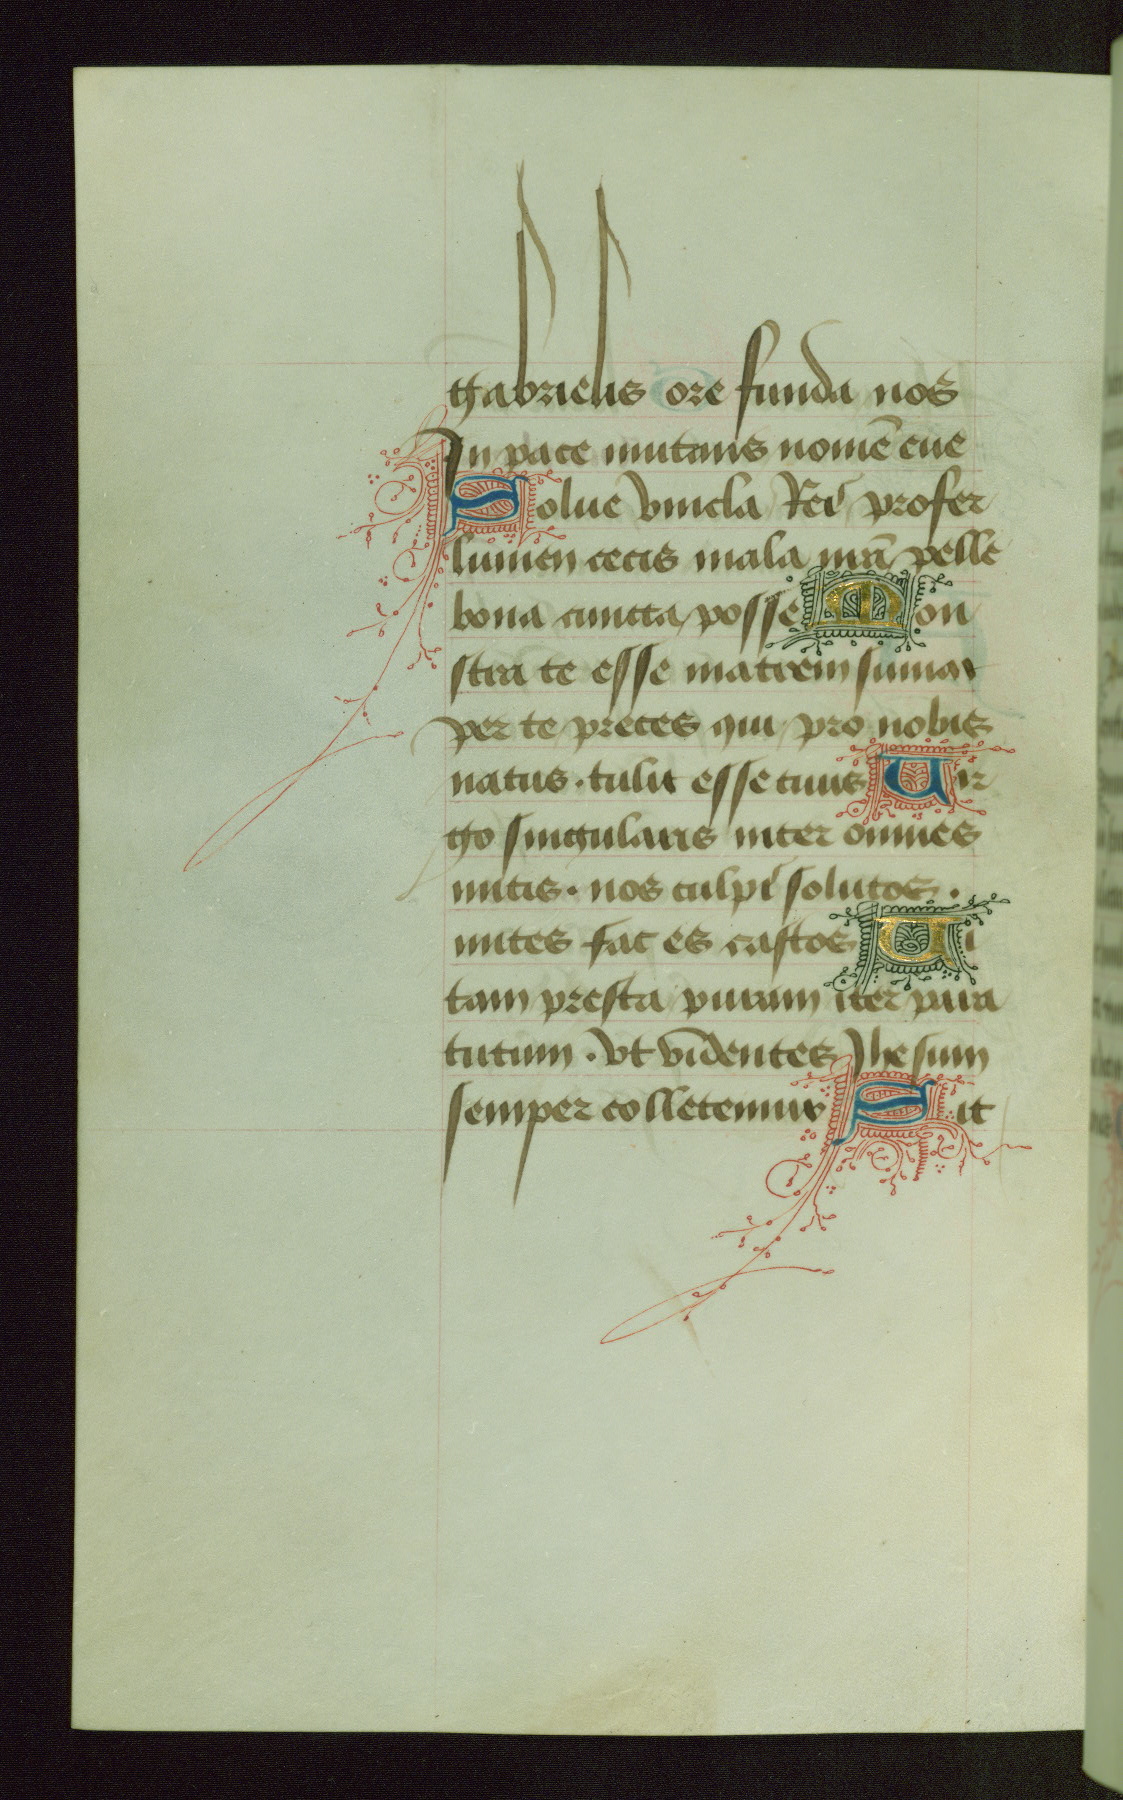 gabrielis ore funda nos
In pace mutans nomē eue
Solue vincla Rei profer
lumen cecis mala nr̄a pelle
bona cuncta posse Mon
stra te esse matrem sumat
per te preces qui pro nobis
natus · tulit esse tuus Uir
go singularis inter omnes
mitis · nos culpi solutos ·
mites fac es castos Ui
tam presta puram iter para
tutum · vt videntes Jhesum
semper colletemur Sit